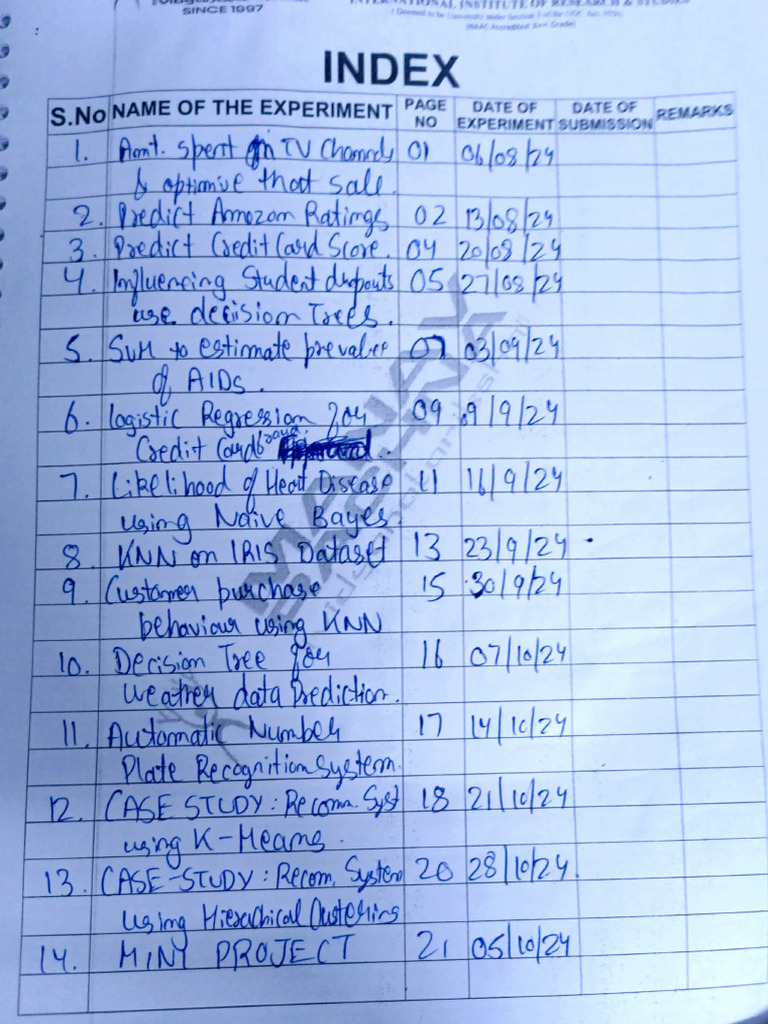 SINCE 1997
INTERNATIONAL INSTITUTE OF RESEARCH & STUDIES
INDEX
S.No NAME OF THE EXPERIMENT PAGE NO DATE OF EXPERIMENT DATE OF SUBMISSION REMARKS
1. Amt. spent on TV Channels 01 06/08/24
& optimive that sale.
2. Predict Amazon Ratings 02 13/08/24
3. Predict Credit Card Score. 04 20/08/24
4. Influencing Student dropouts 05 27/08/24
use decision Trees.
5. SVM to estimate prevalnce 07 03/09/24
of AIDs.
6. Logistic Regression for 09 09/9/24
Credit Card fraud.
7. Likelihood of Heart Disease 11 16/9/24
using Naive Bayes
8. KNN on IRIS Dataset 13 23/9/24
9. Customer purchase 15 30/9/24
behaviour using KNN
10. Decision Tree for 16 07/10/24
weather data Prediction.
11. Automatic Number 17 14/10/24
Plate Recognition System.
12. CASE STUDY: Recomm. Syst 18 21/10/24
using K-Means.
13. CASE-STUDY: Recom. System 20 28/10/24
using Hierachical Clustering
14. MINI PROJECT 21 05/10/24